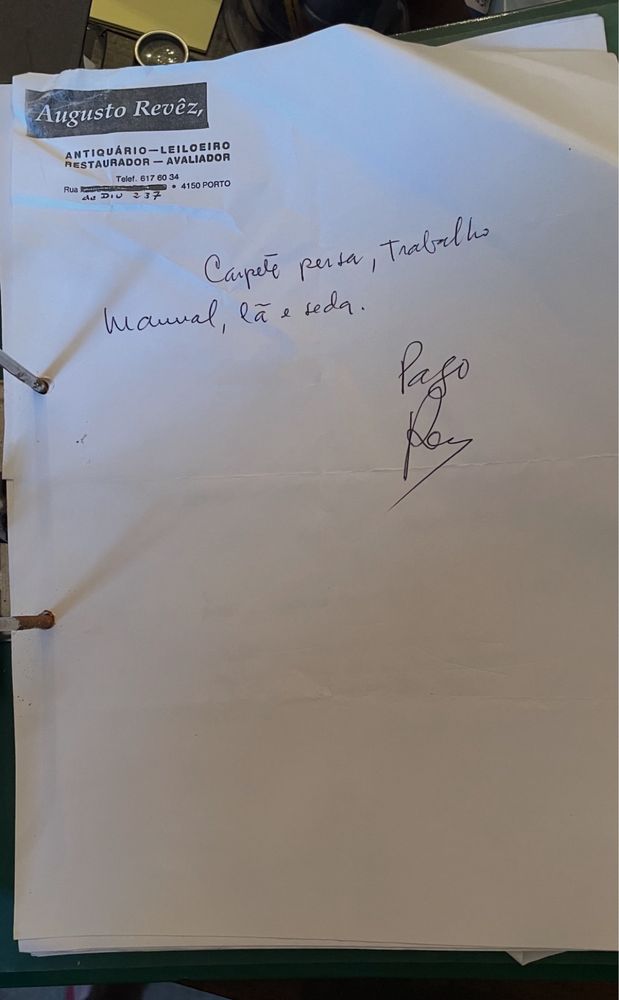 Augusto Revêz,
ANTIQUÁRIO—LEILOEIRO
RESTAURADOR — AVALIADOR
Telef. 617 60 34
Rua • 4150 PORTO
de DIU 237
Carpete persa, trabalho
Manual, lã e seda.
Pago